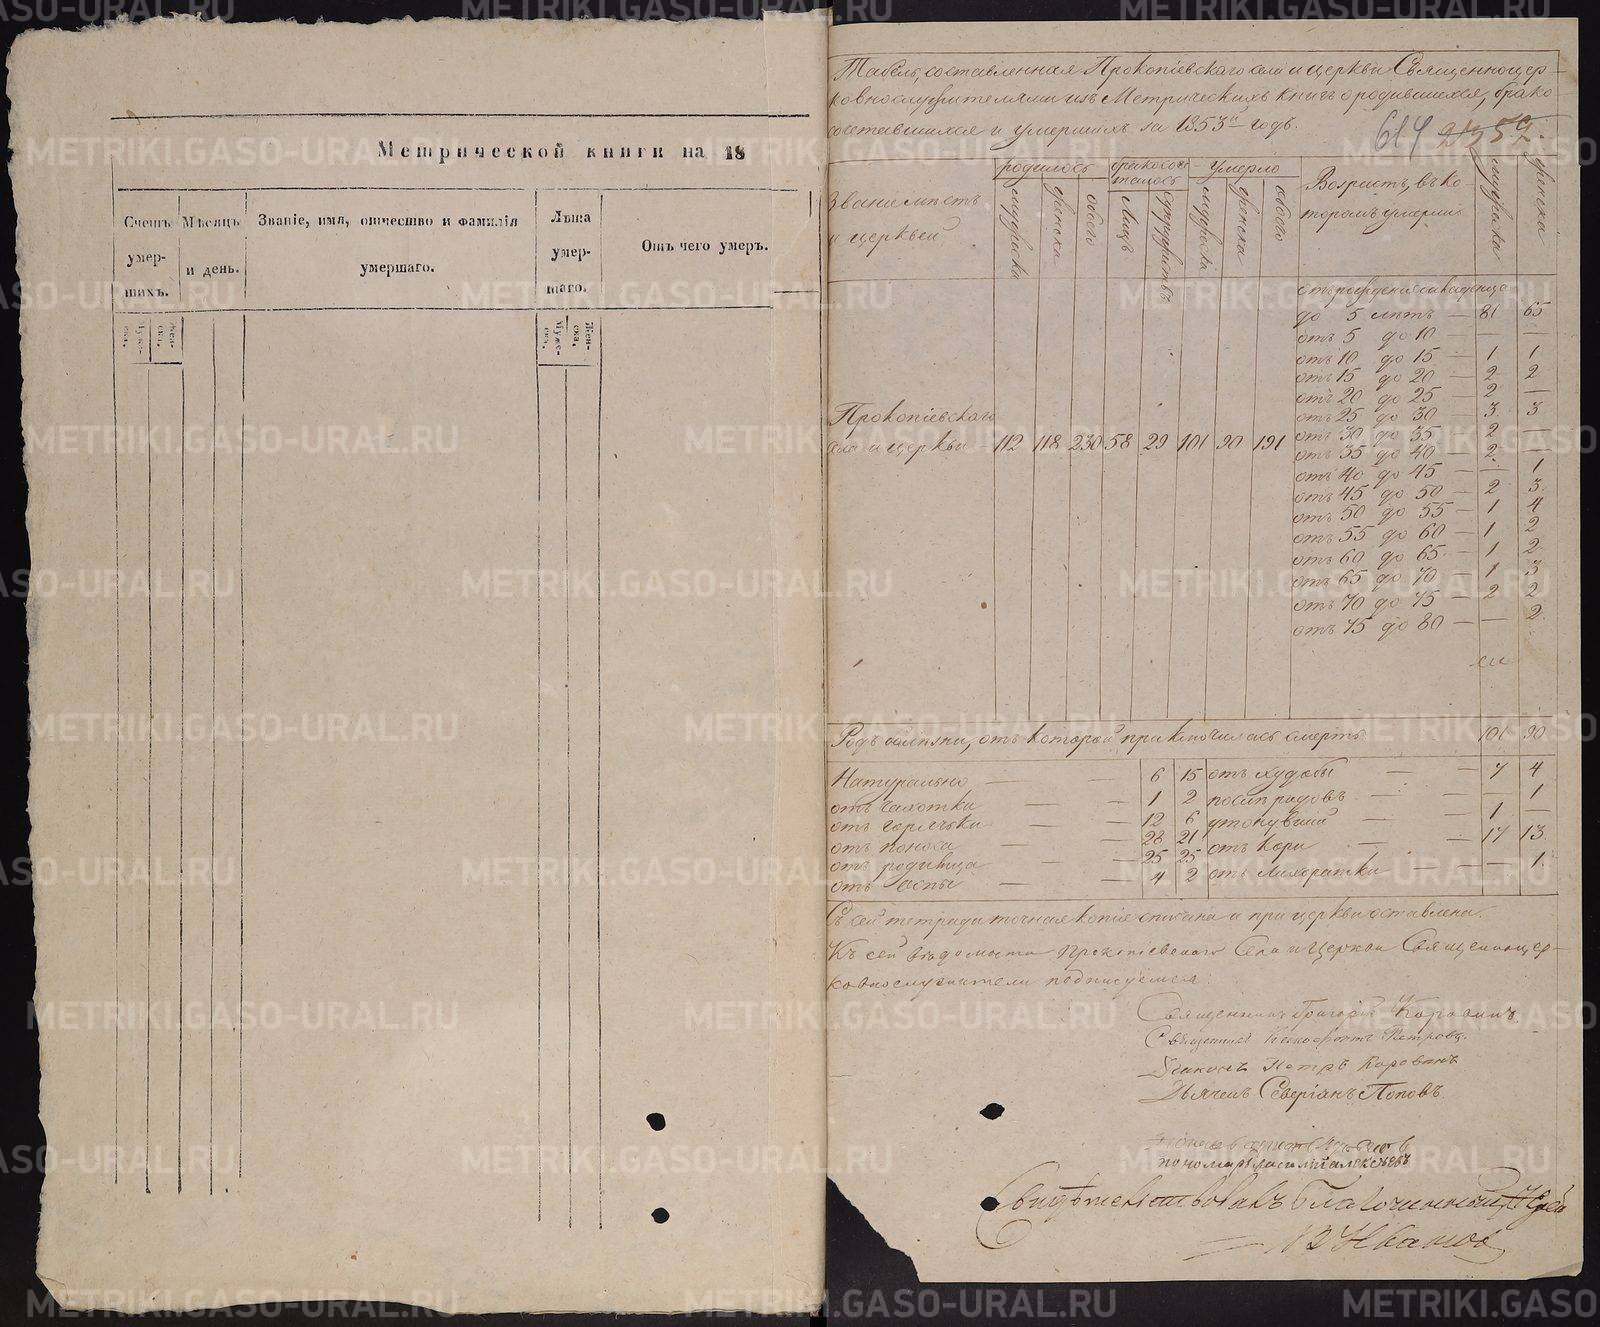 Метрической книги на 18
Счетъ умер-шихъ.
Мѣсяцъ и день.
Званіе, имя, отчество и фамилія умершаго.
Лѣта умер-шаго.
Отъ чего умеръ.
Муже-ска.
Жен-ска.
Муже-ска.
Жен-ска.
Табель, составленная Прокопіевскаго села и церкви Священноцер-
ковнослужителями изъ Метрическихъ книгъ о родившихся, брако-
сочетавшихся и умершихъ за 1853й годъ.
614 59
Званіе мѣстъ и церквей
родилось
мужеска
женска
обоего
бракосоче-талось
Лицъ
супружествъ
умерло
мужеска
женска
обоего
Возрастъ, въ ко-торомъ умерли
мужеска
женска
отъ рожденія младенца
до 5 лѣтъ — 81 65
отъ 5 до 10 — — —
отъ 10 до 15 — 1 1
отъ 15 до 20 — 2 2
отъ 20 до 25 — 2 —
отъ 25 до 30 — 3 3
отъ 30 до 35 — 2 —
отъ 35 до 40 — 2 —
отъ 40 до 45 — — 1
отъ 45 до 50 — 2 3
отъ 50 до 55 — 1 4
отъ 55 до 60 — 1 2
отъ 60 до 65 — 1 2
отъ 65 до 70 — 1 3
отъ 70 до 75 — 2 2
отъ 75 до 80 — — 2
Прокопіевскаго
села и церкви — 112 118 230 58 29 101 90 191
Родъ болѣзни, отъ которой приключилась смерть. 101 90
Натурально — — 6 15 отъ худобы — — 7 4
отъ чахотки — — 1 2 послѣ родовъ — — — 1
отъ горячки — — 12 6 утонувшій — — 1 —
отъ поноса — — 28 21 отъ кори — — 17 13
отъ родимца — — 25 25 отъ лихоратки — — 1
отъ оспы — — 4 2
Съ сей тетради точная копія списана и при церкви оставлена.
Къ сей вѣдомости Прокопіевскаго Села и Церкви Священноцер-
ковнослужители подписуемся:
Священникъ Григорій Коровинъ.
Священникъ Ксенофонтъ Петровъ.
Діаконъ Петръ Коровинъ
Дьячекъ Северіанъ Поповъ.
пономарь Василій Алексѣевъ
Свидѣтельствовалъ Благочинный, Іерей
В Ивановъ
METRIKI.GASO-URAL.RU